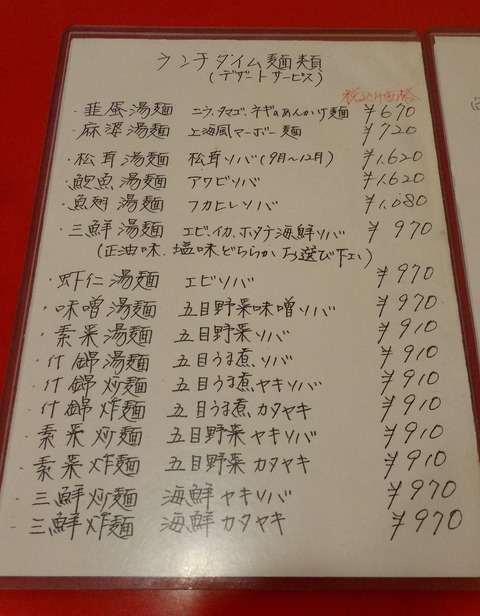 ランチタイム麺類
(デザートサービス)
税込み価格
・韭蛋湯麺 ニラ、タマゴ、ネギのあんかけ麺 ¥670
・麻婆湯麺 上海風マーボー麺 ¥720
・松茸湯麺 松茸ソバ(9月〜12月) ¥1.620
・鮑魚湯麺 アワビソバ ¥1.620
・魚翅湯麺 フカヒレソバ ¥1.080
・三鮮湯麺 エビ、イカ、ホタテ海鮮ソバ ¥970
(正油味、塩味どちらかお選び下さい)
・虾仁湯麺 エビソバ ¥970
・味噌湯麺 五目野菜味噌ソバ ¥970
・素菜湯麺 五目野菜ソバ ¥910
・什錦湯麺 五目うま煮ソバ ¥910
・什錦炒麺 五目うま煮ヤキソバ ¥910
・什錦炸麺 五目うま煮カタヤキ ¥910
・素菜炒麺 五目野菜ヤキソバ ¥910
・素菜炸麺 五目野菜カタヤキ ¥910
・三鮮炒麺 海鮮ヤキソバ ¥970
・三鮮炸麺 海鮮カタヤキ ¥970